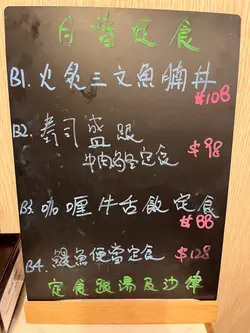 日替定食
B1. 火炙三文魚腩丼
$108
B2: 寿司盛跟
牛肉烏冬定食 $98
B3. 咖喱牛舌飯定食
$88
B4. 鰻魚便當定食 $128
定食跟湯及沙律